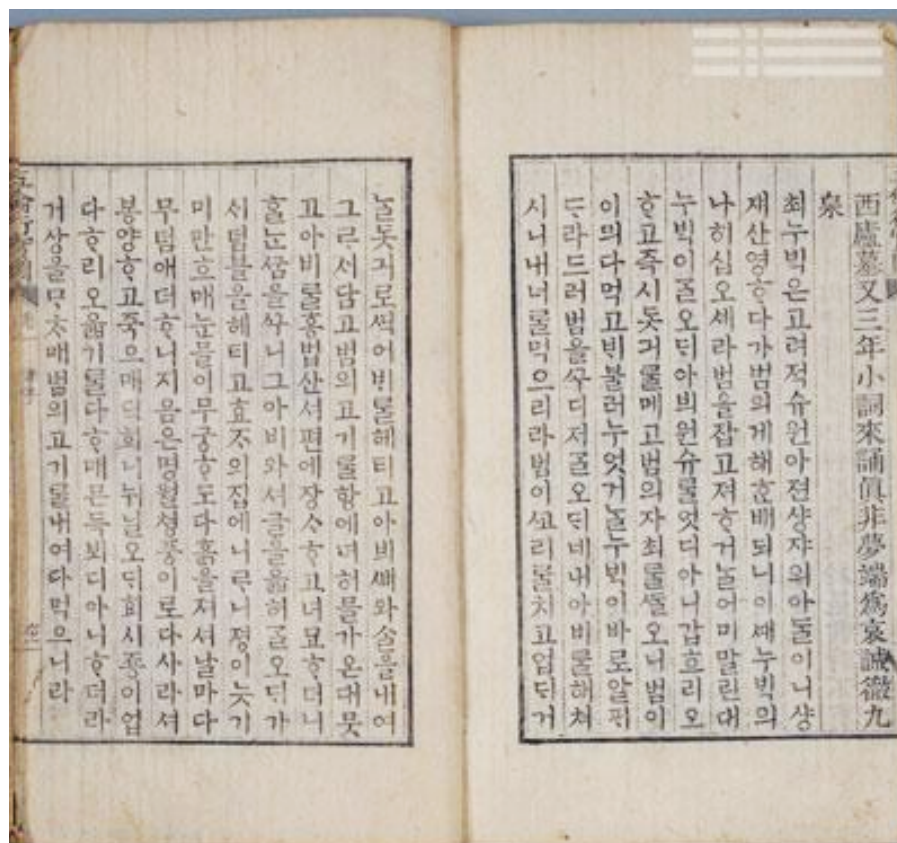 西廬墓又三年小詞來誦眞非夢端爲哀誠徹九
泉
최누ᄇᆡᆨ은고려적슈원아젼샹쟈의아ᄃᆞᆯ이니샹
쟤산영ᄒᆞ다가범의게해ᄒᆞᆫ배되니이ᄣᅢ누ᄇᆡᆨ의
나히십오셰라범을잡고져ᄒᆞ거ᄂᆞᆯ어미말린대
누ᄇᆡᆨ이ᄀᆞᆯ오ᄃᆡ아븨원슈ᄅᆞᆯ엇디아니갑흐리오
ᄒᆞ고즉시돗긔ᄅᆞᆯ메고범의자최ᄅᆞᆯᄯᆞᆯ오니범이
이믜다먹고ᄇᆡ불러누엇거ᄂᆞᆯ누ᄇᆡᆨ이바로알ᄑᆡ
ᄃᆞ라드러범을ᄭᅮ디저ᄀᆞᆯ오ᄃᆡ네내아비ᄅᆞᆯ해쳐
시니내너ᄅᆞᆯ먹으리라범이ᄭᅩ리ᄅᆞᆯ치고업ᄃᆡ거
ᄂᆞᆯ돗긔로ᄶᅵᆨ어ᄇᆡᄅᆞᆯ헤티고아븨ᄲᅧ와ᄉᆞᆯ을내여
그ᄅᆞ서담고범의고기ᄅᆞᆯ항에녀허믈가온대뭇
고아비ᄅᆞᆯ홍법산셔편에장ᄉᆞᄒᆞ고녀묘ᄒᆞ더니
ᄒᆞᆯᄂᆞᆫᄭᅮᆷ을ᄭᅮ니그아비와셔글을읇허ᄀᆞᆯ오ᄃᆡ가
서덤블을헤티고효ᄌᆞ의집에니ᄅᆞ니졍이늣기
미만흐매눈믈이무궁ᄒᆞ도다흙을져셔날마다
무덤애더ᄒᆞ니지음은명월쳥풍이로다사라셔
봉양ᄒᆞ고죽으매딕희니뉘닐오ᄃᆡ효시죵이업
다ᄒᆞ리오읇기ᄅᆞᆯ다ᄒᆞ매믄득뵈디아니ᄒᆞ더라
거상을ᄆᆞᄎᆞ매범의고기ᄅᆞᆯ내여다먹으니라